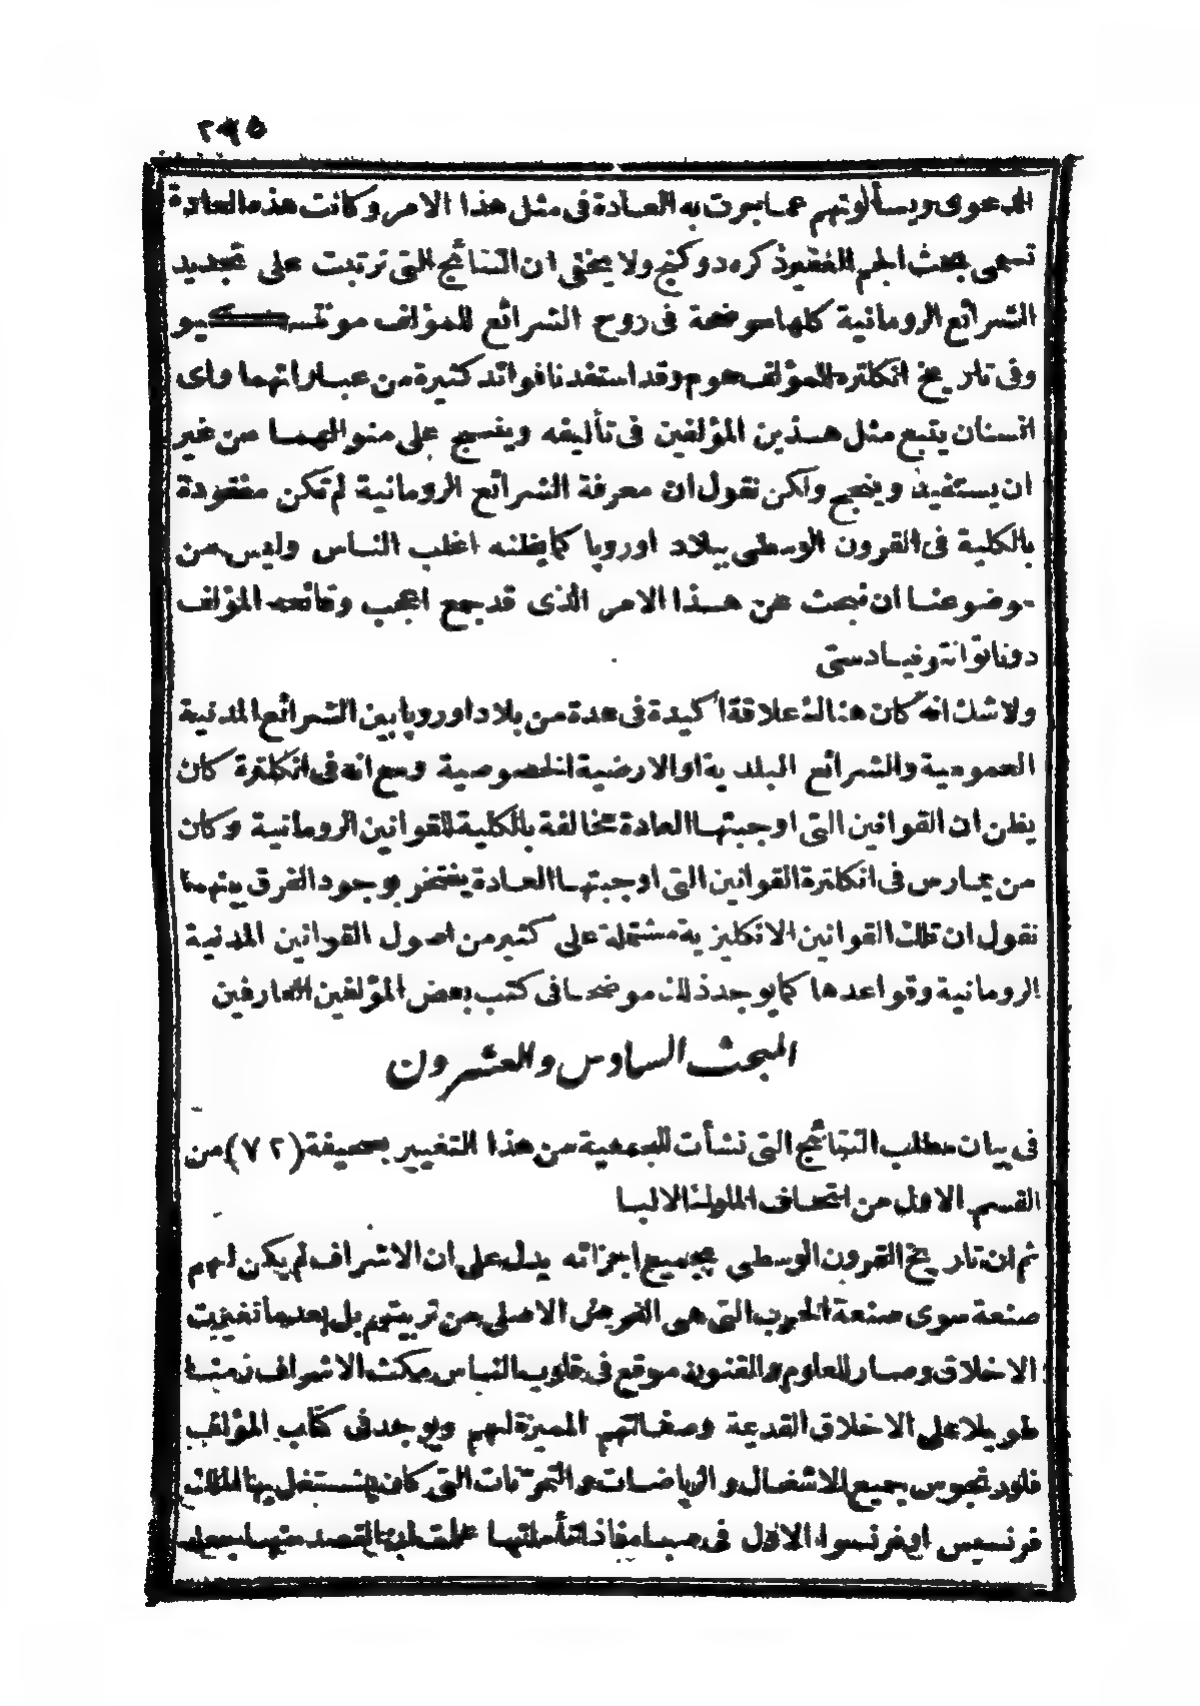 ٢٩٥
الدعوى ويسألونهم عما جرت به العادة فى مثل هذا الامر وكانت هذه العادة
تسمى بحث الجم الغفير ذكره دوكنج ولا يخفى ان النتائج التى ترتبت على تجديد
الشرائع الرومانية كلها موضحة فى روح الشرائع للمؤلف مونتسكيو
وفى تاريخ انكلترة للمؤلف هوم وقد استفدنا فوائد كثيرة من عباراتهما واى
انسان يتبع مثل هذين المؤلفين فى تأليفه وينسج على منوالهما من غير
ان يستفيد وينجح ولكن نقول ان معرفة الشرائع الرومانية لم تكن مفقودة
بالكلية فى القرون الوسطى ببلاد اوروپا كما يظنه اغلب الناس وليس من
موضوعنا ان نبحث عن هذا الامر الذى قد جمع اعجب وقائعه المؤلف
دوناتوانتونيادستى
ولا شك انه كان هنالك علاقة اكيدة فى عدة من بلاد اوروپا بين الشرائع المدنية
العمومية والشرائع البلدية او الارضية الخصوصية ومع انه فى انكلترة كان
يظن ان القوانين التى اوجبتها العادة مخالفة بالكلية للقوانين الرومانية وكان
من يمارس فى انكلترة القوانين التى اوجبتها العادة يفتخر بوجود الفرق بينهما
نقول ان تلك القوانين الانكليزية مشتملة على كثير من اصول القوانين المدنية
الرومانية وقواعدها كما يوجد ذلك موضحا فى كتب بعض المؤلفين العارفين
المبحث السادس والعشرون
فى بيان مطلب النتائج التى نشأت للجمعية من هذا التغيير بصحيفة (٧٢) من
القسم الاول من اتحاف الملوك الالبا
ثم ان تاريخ القرون الوسطى بجميع اجزائه يدل على ان الاشراف لم يكن لهم
صنعة سوى صنعة الحرب التى هى الغرض الاصلى من تربيتهم بل بعدما تغيرت
الاخلاق وصار للعلوم والفنون موقع فى قلوب الناس مكث الاشراف زمنا
طويلا على الاخلاق القديمة وصفاتهم المميزة لهم ويوجد فى كتاب المؤلف
فلورنجوس جميع الاشغال والرياضات والتمرّنات التى كان يشتغل بها الملك
فرنسيس او فرنسوا الاوّل فى صباه فاذا تأملتها علمت ان القصد منها جعله